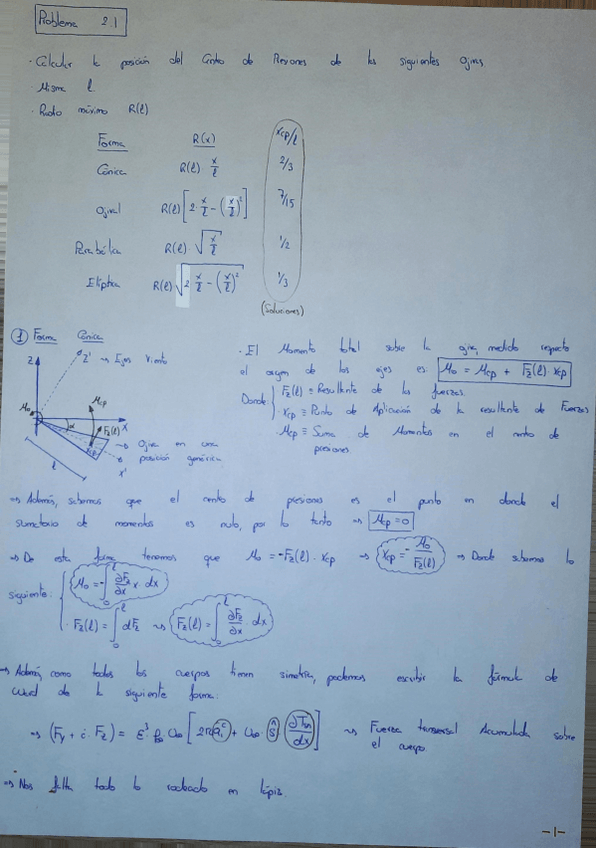 Problema 2.1
· Calcular la posición del Centro de Presiones de las siguientes Ojivas
· Misma l
· Radio máximo R(l)
Forma R(x) xcp/l
Cónica R(l) x/l 2/3
Ojival R(l)[2·x/l − (x/l)²] 7/15
Parabólica R(l)·√(x/l) 1/2
Elíptica R(l)√(2 x/l − (x/l)²) 1/3
(Soluciones)
① Forma Cónica
Z
Z' → Ejes Viento
Mo
Mcp
Fz(l)
α
X
xcp
l
x'
→ Ojiva en una posición genérica
· El Momento total sobre la ojiva, medido respecto
el origen de los ejes es: Mo = Mcp + Fz(l) xcp
Donde { Fz(l) ≡ Resultante de las fuerzas.
xcp ≡ Punto de Aplicación de la resultante de Fuerzas
Mcp ≡ Suma de Momentos en el centro de
presiones
⇒ Además, sabemos que el centro de presiones es el punto en donde el
sumatorio de momentos es nulo, por lo tanto ⇒ Mcp = 0
⇒ De esta forma tenemos que Mo = −Fz(l)·xcp ⇒ xcp = − Mo/Fz(l) ⇒ Donde sabemos lo
siguiente: { Mo = −∫₀ˡ ∂Fz/∂x x dx
· Fz(l) = ∫₀ˡ dFz ⇒ Fz(l) = ∫₀ˡ ∂Fz/∂x dx
⇒ Además como todos los cuerpos tienen simetría, podemos escribir la fórmula de
Ward de la siguiente forma:
⇒ Fuerza transversal Acumulada sobre
el cuerpo
⇒ Nos falta todo lo rodeado en lápiz.
-1-